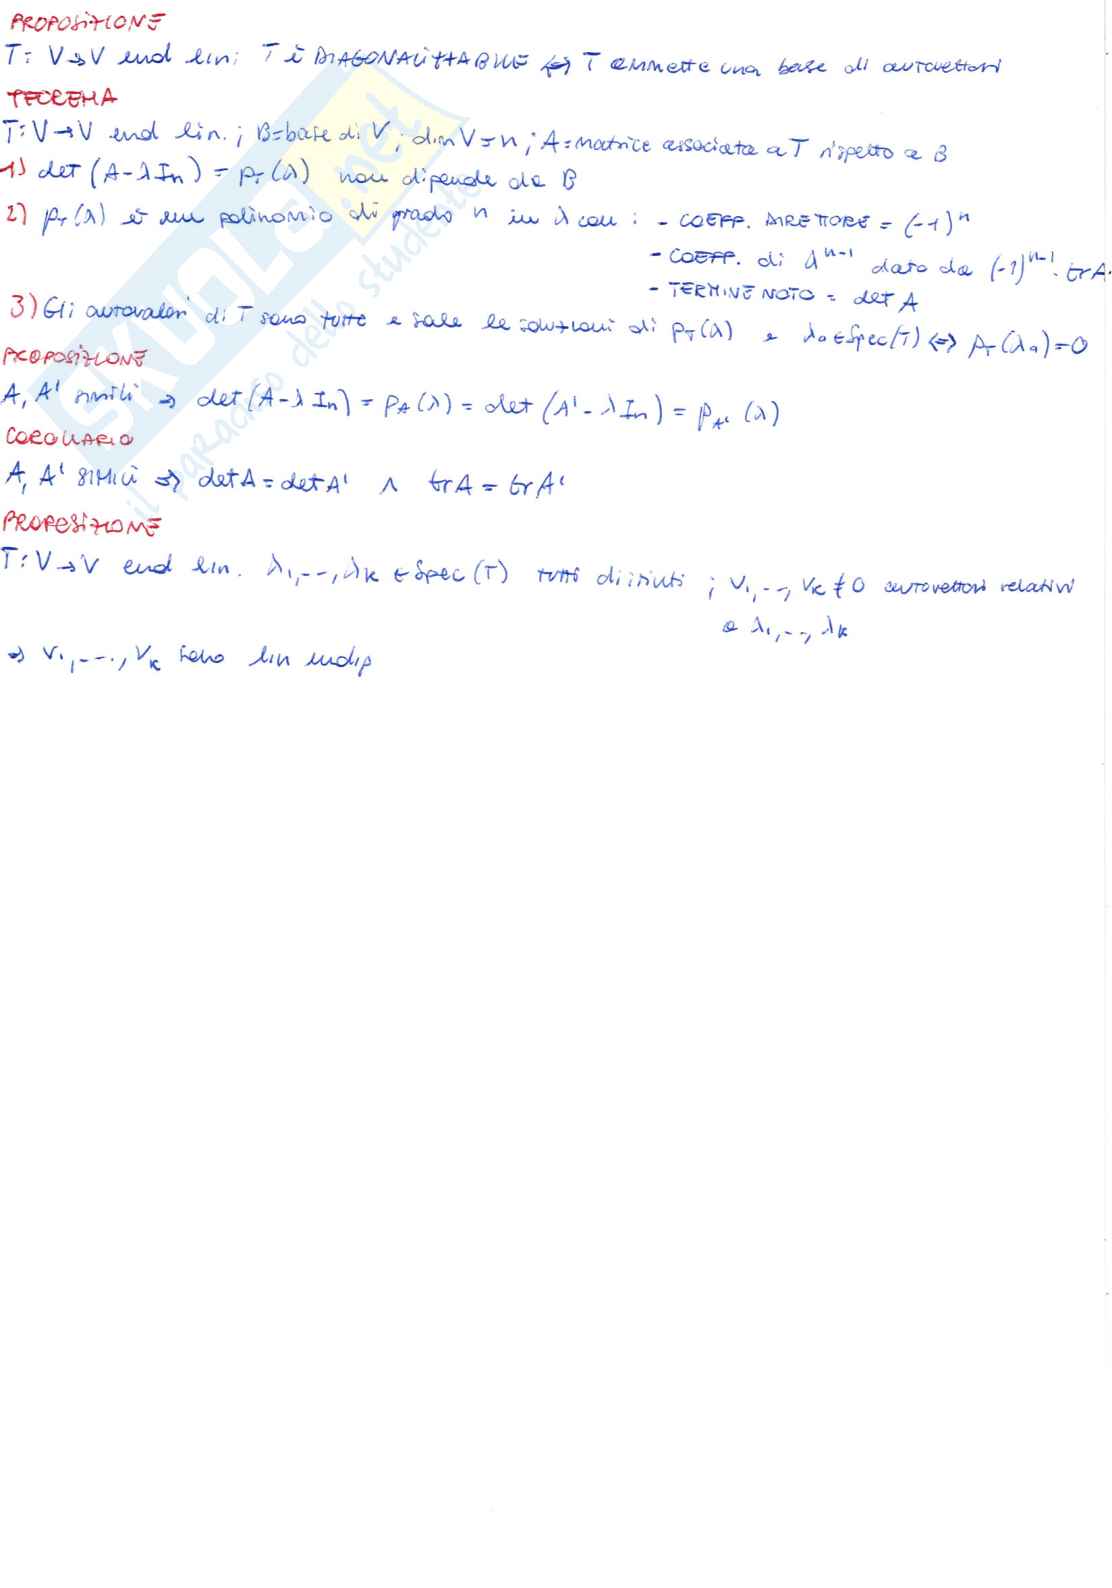 PROPOSIZIONE
T: V→V end lin; T è DIAGONALIZZABILE ⇔ T ammette una base di autovettori
TEOREMA
T: V→V end lin.; B=base di V; dim V=n; A=matrice associata a T rispetto a B
1) det (A-λIn) = p_T(λ) non dipende da B
2) p_T(λ) è un polinomio di grado n in λ con: - COEFF. DIRETTORE = (-1)^n
- COEFF. di λ^{n-1} dato da (-1)^{n-1}·trA
- TERMINE NOTO = det A
3) Gli autovalori di T sono tutte e sole le soluzioni di p_T(λ) e λ₀∈Spec(T) ⇔ p_T(λ₀)=0
PROPOSIZIONE
A, A' simili ⇒ det(A-λIn) = p_A(λ) = det(A'-λIn) = p_A'(λ)
COROLLARIO
A, A' SIMILI ⇒ detA = detA' ∧ trA = trA'
PROPOSIZIONE
T: V→V end lin. λ₁,--,λk ∈ Spec(T) tutti distinti; v₁,--,vk ≠0 autovettori relativi
a λ₁,--,λk
⇒ v₁,--.,vk sono lin indip
SKUOLA.net
il paradiso dello studente